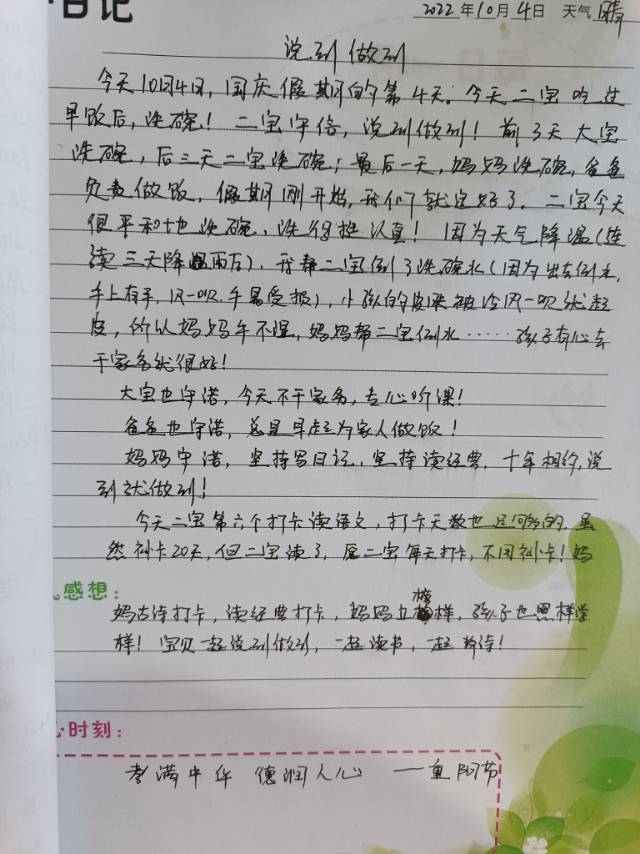 日记
2022年10月4日 天气 晴
说到做到
今天10月4日,国庆假期的第4天。今天二宝吃过
早饭后,洗碗!二宝守信,说到做到!前3天大宝
洗碗,后三天二宝洗碗;最后一天,妈妈洗碗,爸爸
负责做饭,假期刚开始,我们就定好了。二宝今天
很平和地洗碗,洗得挺认真!因为天气降温(连
续三天降温雨后),我帮二宝倒了洗碗水(因为出去倒水,
手上有水,风一吹,手易受损),小孩的皮肤被冷风一吹就起
皮,所以妈妈手不湿,妈妈帮二宝倒水……孩子有心去
干家务就很好!
大宝也守诺,今天不干家务,专心听课!
爸爸也守诺,总是早起为家人做饭!
妈妈守诺,坚持写日记,坚持读经典,十年相约,说
到就做到!
今天二宝第六个打卡读语文,打卡天数也是同步的,虽
然补卡20天,但二宝读了,后二宝每天打卡,不用补卡!妈
感想:
妈古诗打卡,读经典打卡,妈妈立榜样,孩子也照样学
样!宝贝一起说到做到,一起读书,一起期待!
心时刻:
孝满中华 德润人心 ——重阳节